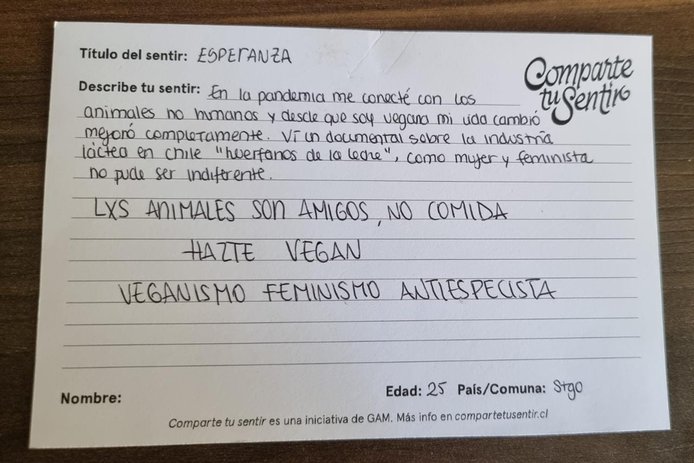 Título del sentir: ESPERANZA
Comparte
tu Sentir
Describe tu sentir: En la pandemia me conecté con los
animales no humanos y desde que soy vegana mi vida cambió
mejoró completamente. Vi un documental sobre la industria
láctea en Chile "huerfanos de la leche", como mujer y feminista
no pude ser indiferente.
LXS ANIMALES SON AMIGOS, NO COMIDA
HAZTE VEGAN
VEGANISMO FEMINISMO ANTIESPECISTA
Nombre:
Edad: 25 País/Comuna: Stgo
Comparte tu sentir es una iniciativa de GAM. Más info en compartetusentir.cl